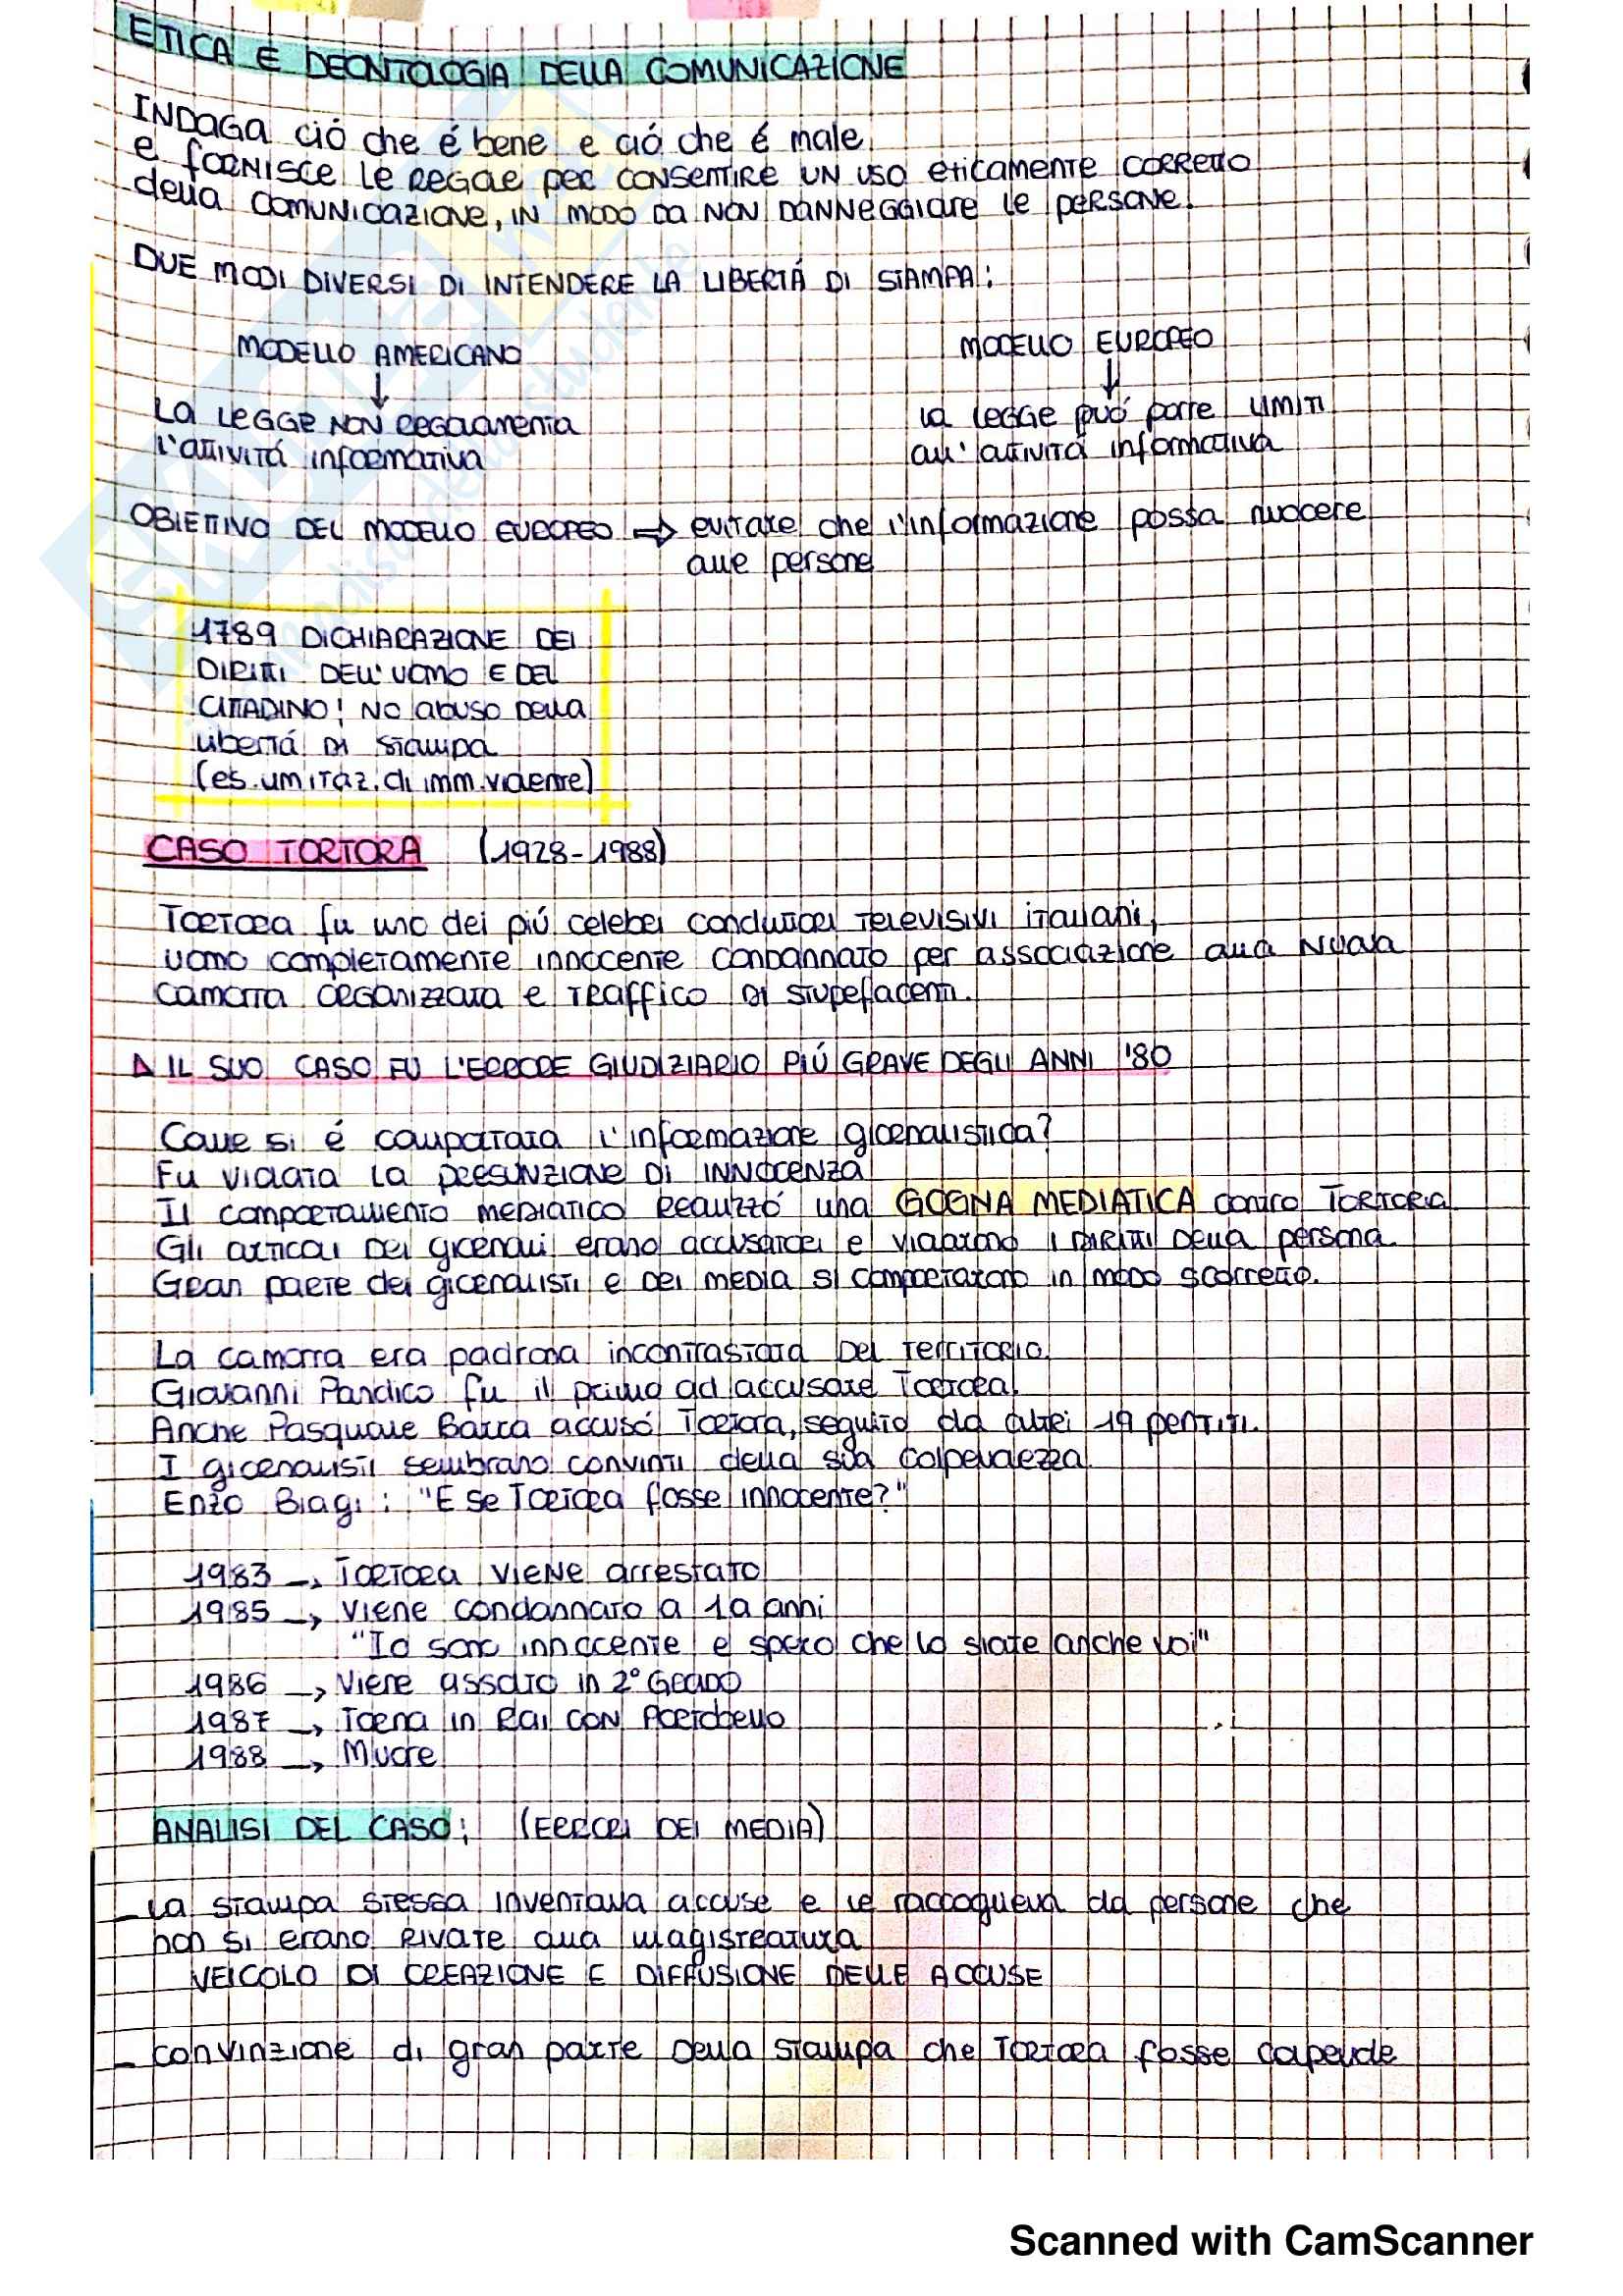 ETICA E DEONTOLOGIA DELLA COMUNICAZIONE
INDAGA ciò che é bene e ciò che é male
e fornisce le regole per consentire un uso eticamente corretto
della comunicazione, in modo da non danneggiare le persone.
DUE MODI DIVERSI DI INTENDERE LA LIBERTÁ DI STAMPA:
MODELLO AMERICANO
MODELLO EUROPEO
La legge non regolamenta
l'attività informativa
la legge puó porre limiti
all'attività informativa
OBIETTIVO DEL MODELLO EUROPEO ⇒ evitare che l'informazione possa nuocere
alle persone
1789 DICHIARAZIONE DEI
DIRITTI DELL'UOMO E DEL
CITTADINO! No abuso della
libertá di stampa
(es. limitaz. di imm. violente)
CASO TORTORA (1928-1988)
Tortora fu uno dei piú celebri conduttori televisivi italiani,
uomo completamente innocente condannato per associazione alla Nuova
camorra organizzata e traffico di stupefacenti.
IL SUO CASO FU L'ERRORE GIUDIZIARIO PIÚ GRAVE DEGLI ANNI '80
Come si é comportata l'informazione giornalistica?
Fu violata la presunzione di innocenza
Il comportamento mediatico realizzó una GOGNA MEDIATICA contro Tortora
Gli articoli dei giornali erano accusatori e violarono i diritti della persona.
Gran parte dei giornalisti e dei media si comportarono in modo scorretto.
La camorra era padrona incontrastata del territorio.
Giovanni Pandico fu il primo ad accusare Tortora.
Anche Pasquale Barra accusó Tortora, seguito da altri 19 pentiti.
I giornalisti sembrano convinti della sua colpevolezza.
Enzo Biagi: "E se Tortora fosse innocente?"
1983 → Tortora viene arrestato
1985 → Viene condannato a 10 anni
"Io sono innocente e spero che lo siate anche voi"
1986 → Viene assolto in 2° Grado
1987 → Torna in Rai con Portobello
1988 → Muore
ANALISI DEL CASO: (ERRORI DEI MEDIA)
- La stampa stessa inventava accuse e le raccoglieva da persone che
non si erano rivolte alla magistratura
VEICOLO DI CREAZIONE E DIFFUSIONE DELLE ACCUSE
- convinzione di gran parte della stampa che Tortora fosse colpevole
Scanned with CamScanner